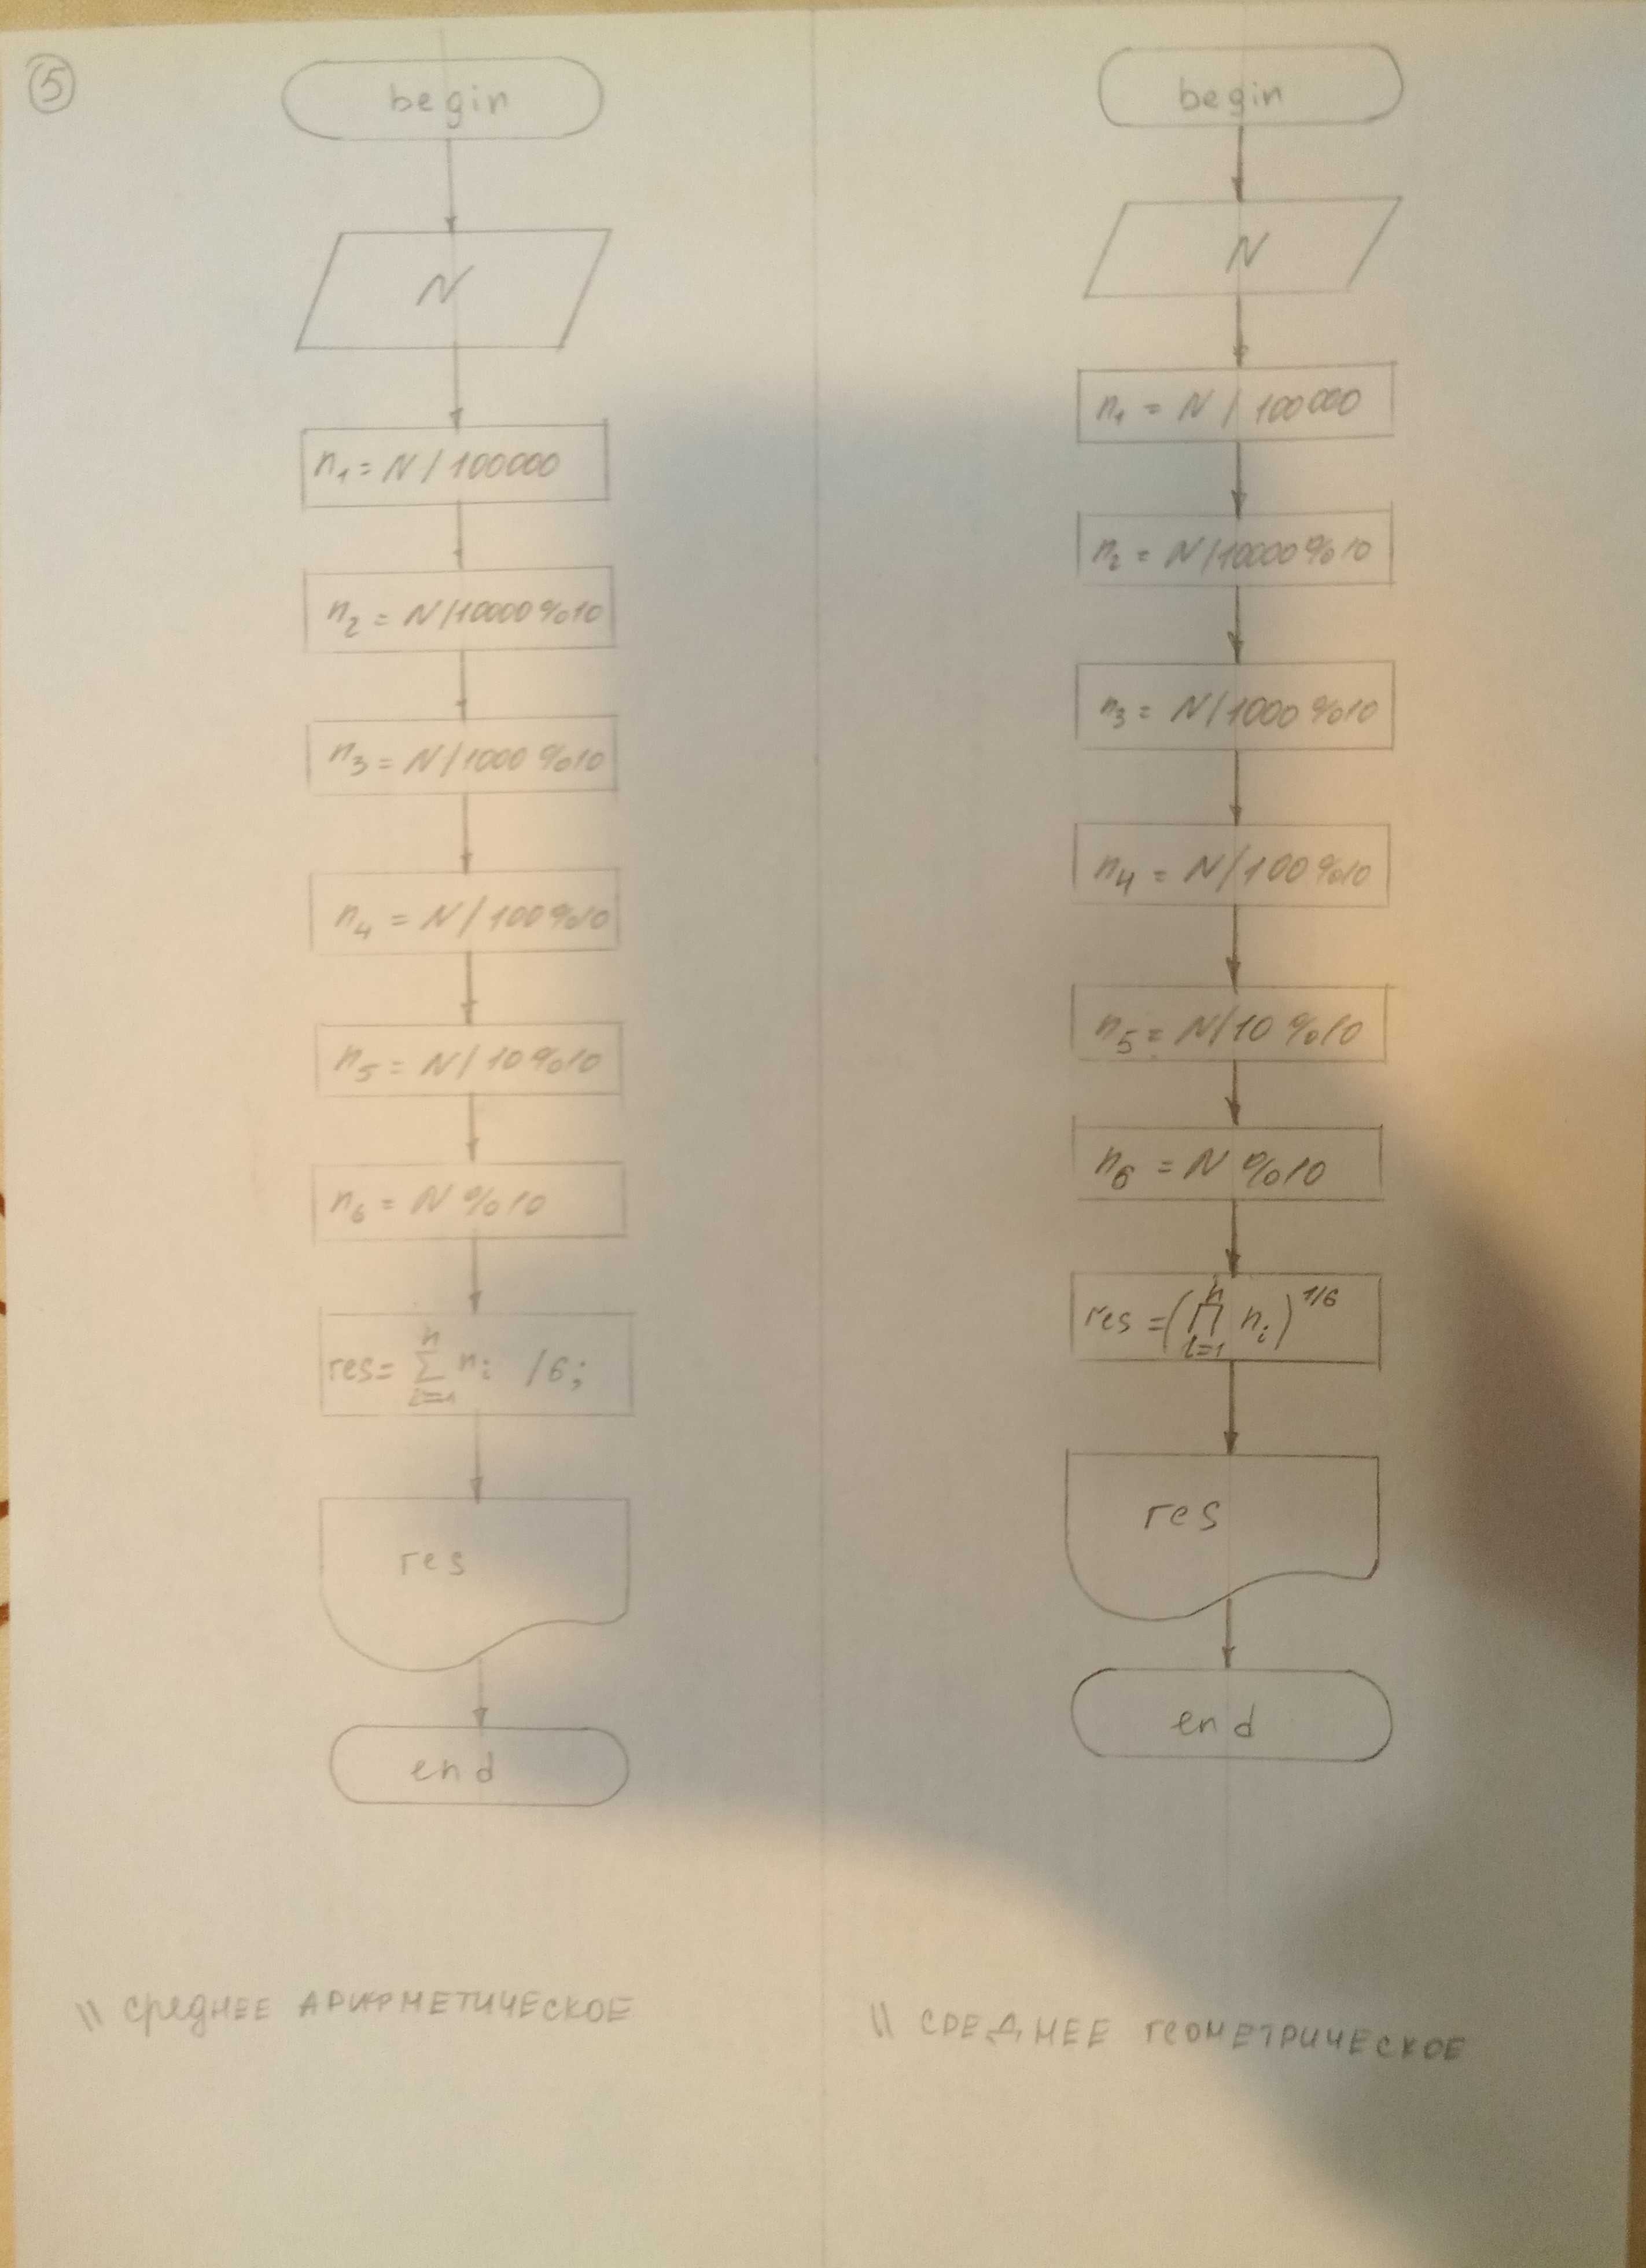 5
begin
N
n₁ = N / 100000
n₂ = N/10000%10
n₃ = N/1000%10
n₄ = N/100%10
n₅ = N/10%10
n₆ = N%10
n
res= Σ nᵢ /6;
i=1
res
end
\\ среднее АРИФМЕТИЧЕСКОЕ
begin
N
n₁ = N / 100000
n₂ = N/10000%10
n₃ = N/1000%10
n₄ = N/100%10
n₅ = N/10%10
n₆ = N%10
n
res = (∏ nᵢ)^1/6
i=1
res
end
\\ СРЕДНЕЕ ГЕОМЕТРИЧЕСКОЕ